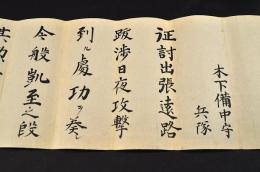 木下備中守
兵隊
征討出張遠路
跋渉日夜攻撃
到ル處功ヲ奏
今般凱至之段